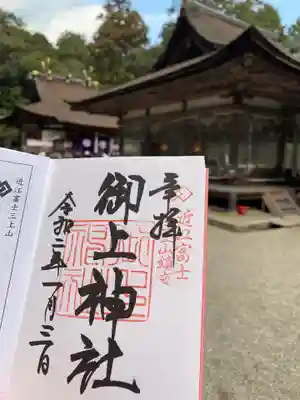 奉拝
近江富士
御上神社
令和二年一月三日
近江富士三上山